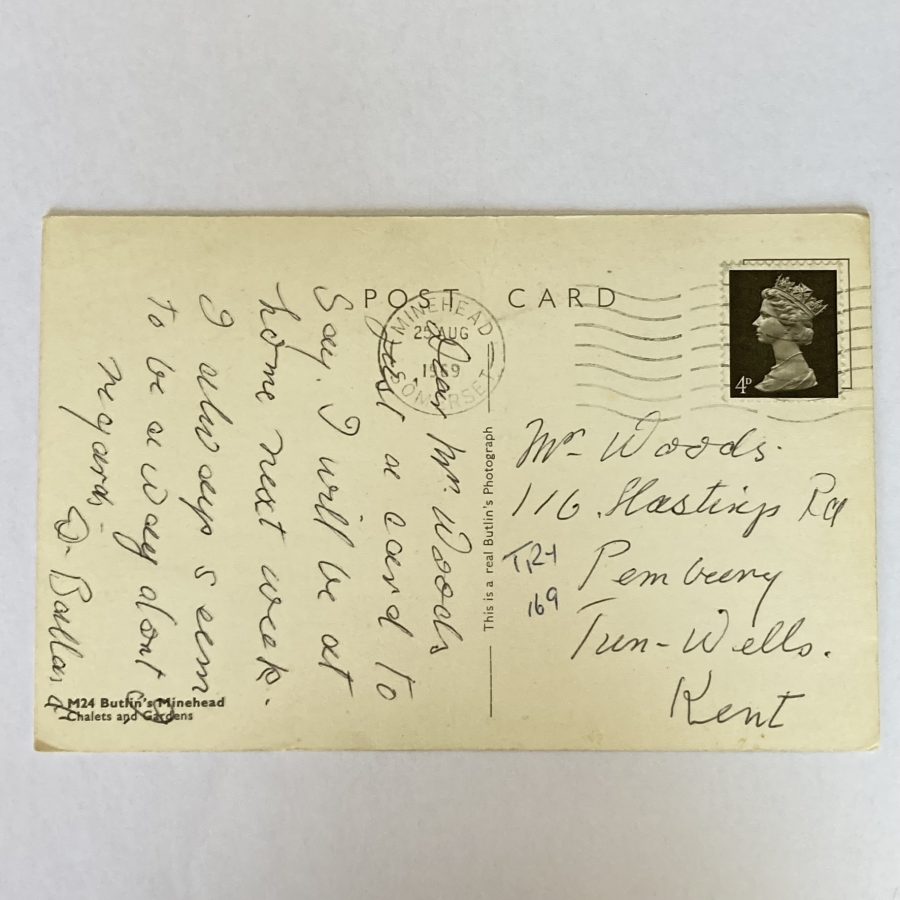 POST CARD
MINEHEAD
25 AUG
1969
SOMERSET
4D
Dear Mr. Woods
Just a card to
Say. I will be at
home next week.
I always seem
to be away dont I
regards
D. Ballard
This is a real Butlin's Photograph
Mr Woods.
116 Hastings Rd
Pembury
Tun-Wells.
Kent
TR4
169
M24 Butlin's Minehead
Chalets and Gardens